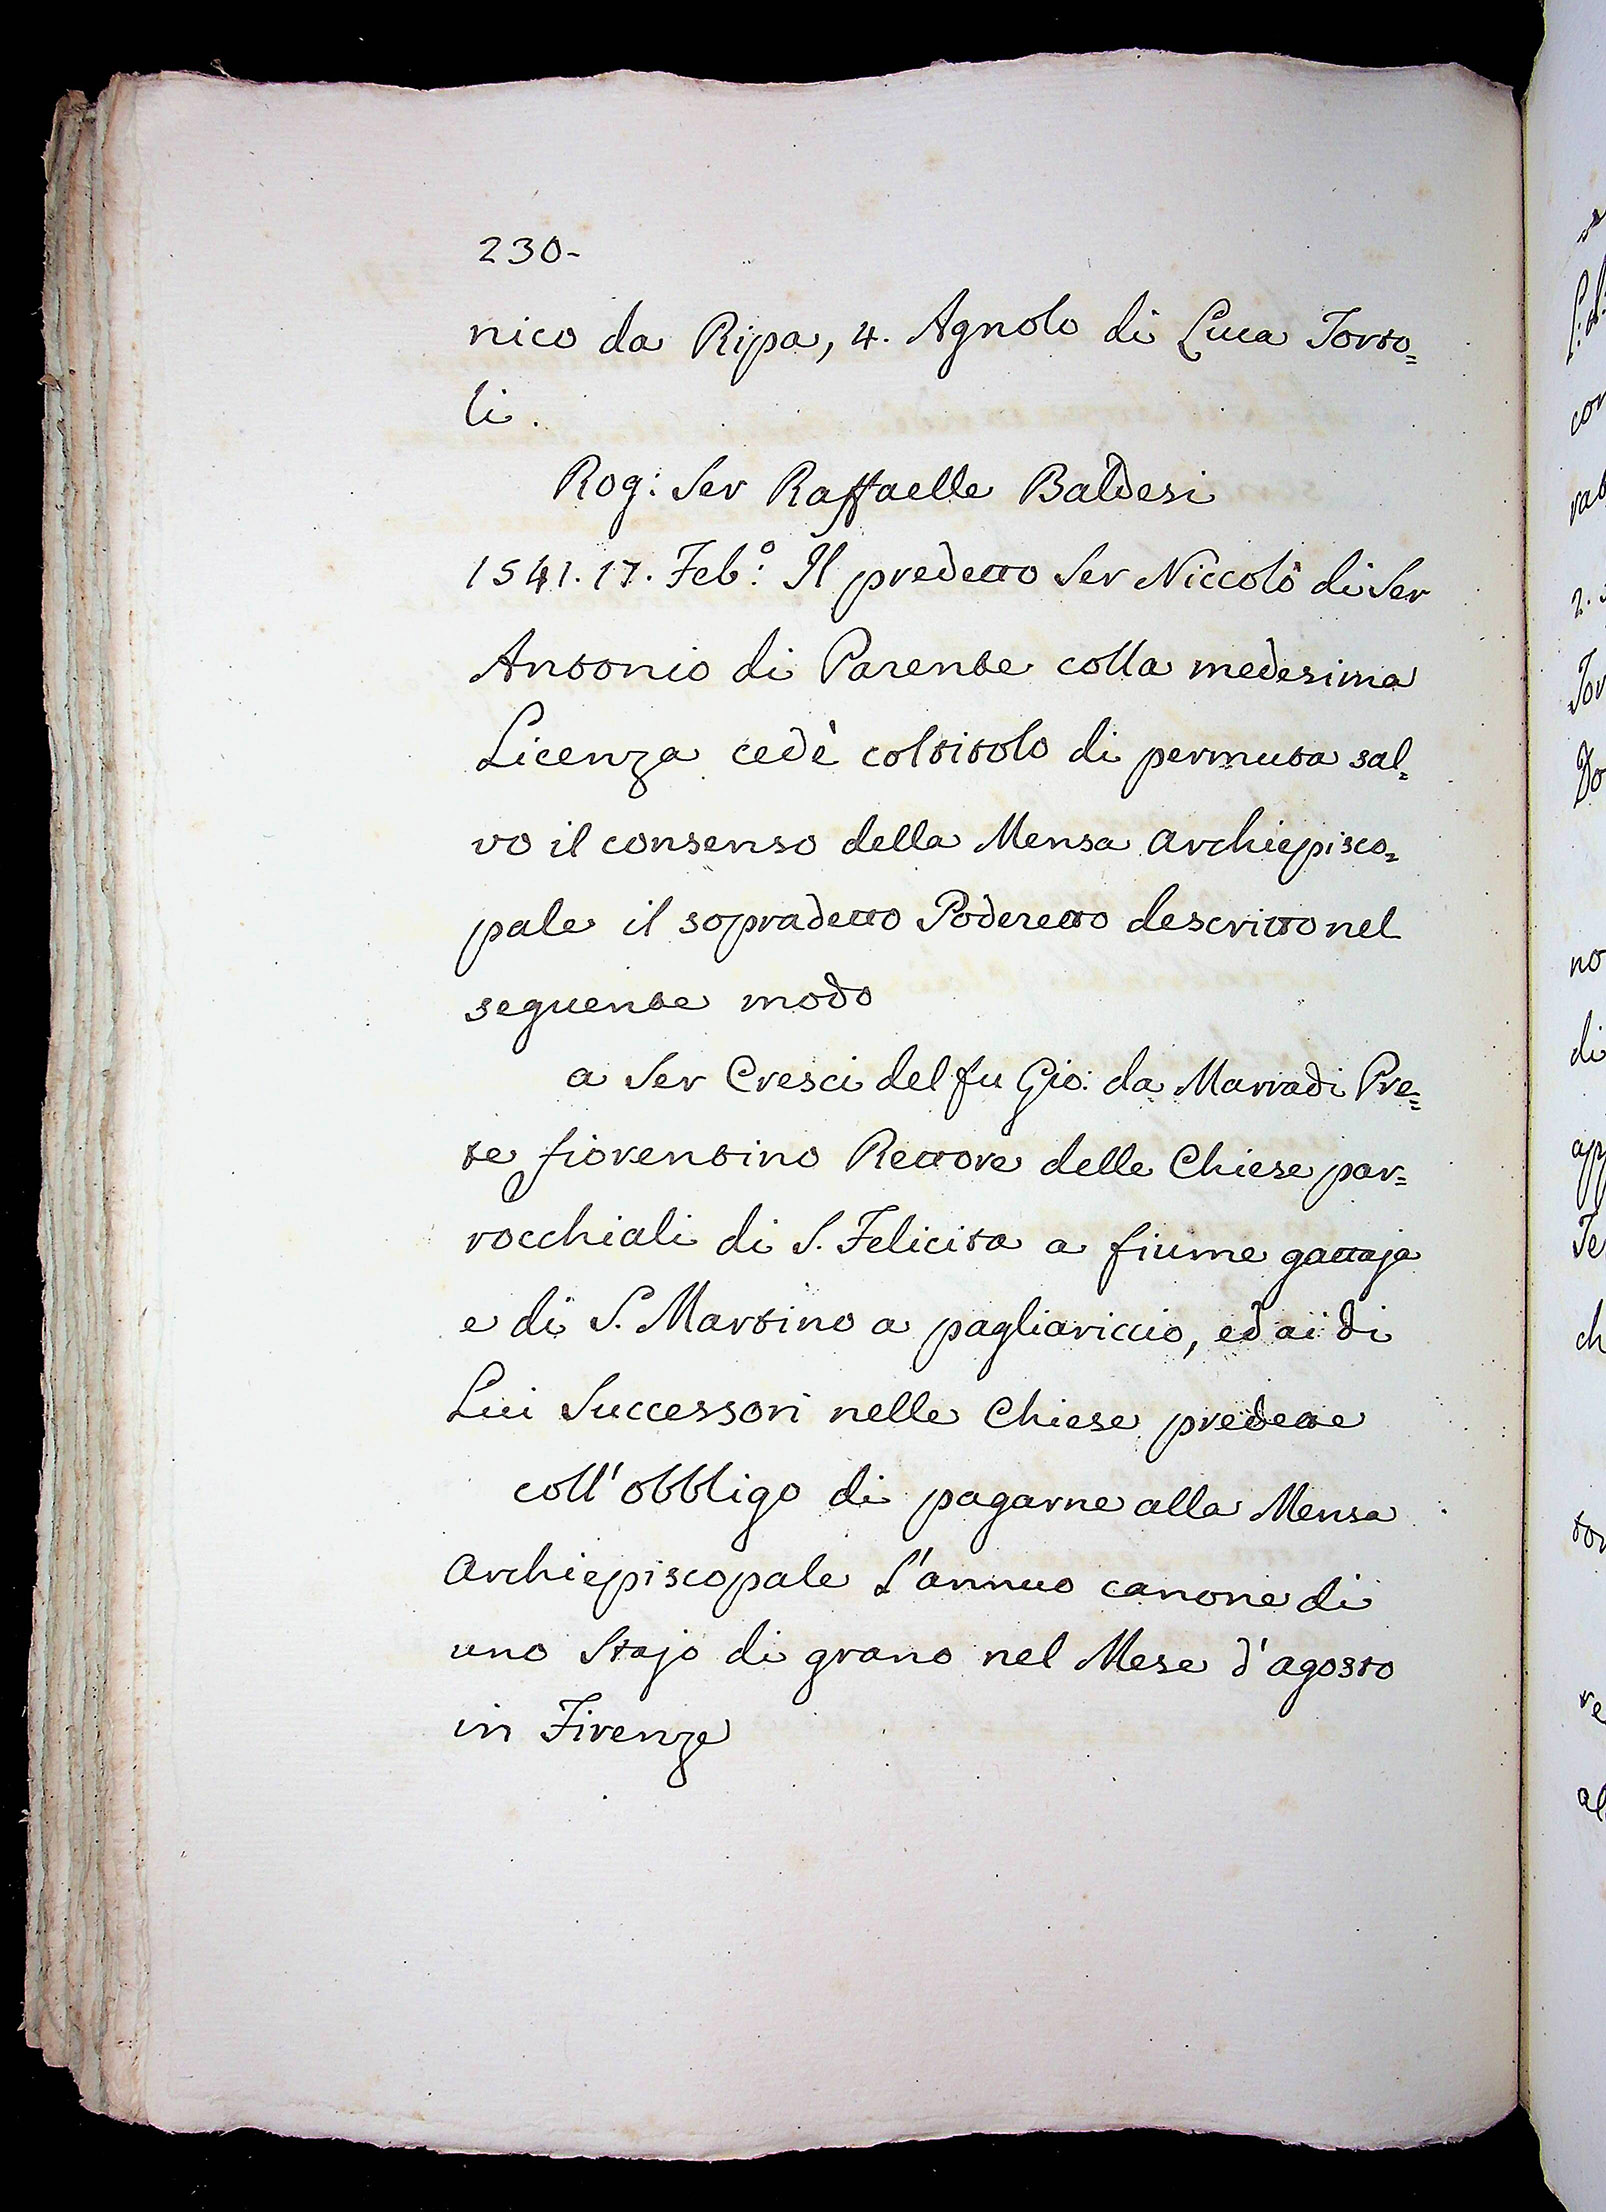 230-
nico da Ripa, 4. Agnolo di Luca Torto=
li.
Rog: Ser Raffaelle Baldesi
1541. 17. Feb.º Il predetto Ser Niccolò di Ser
Antonio di Parente colla medesima
Licenza cedè coltitolo di permuta sal=
vo il consenso della Mensa Archiepisco=
pale il sopradetto Poderetto descritto nel
seguente modo
a Ser Cresci del fu Gio: da Marradi Pre=
te fiorentino Rettore delle Chiese par=
rocchiali di S. Felicita a fiume gattaja
e di S. Martino a pagliariccio, ed ai di
Lui Successori nelle Chiese predette
coll'obbligo di pagarne alla Mensa
Archiepiscopale l'annuo canone di
uno Stajo di grano nel Mese d'agosto
in Firenze